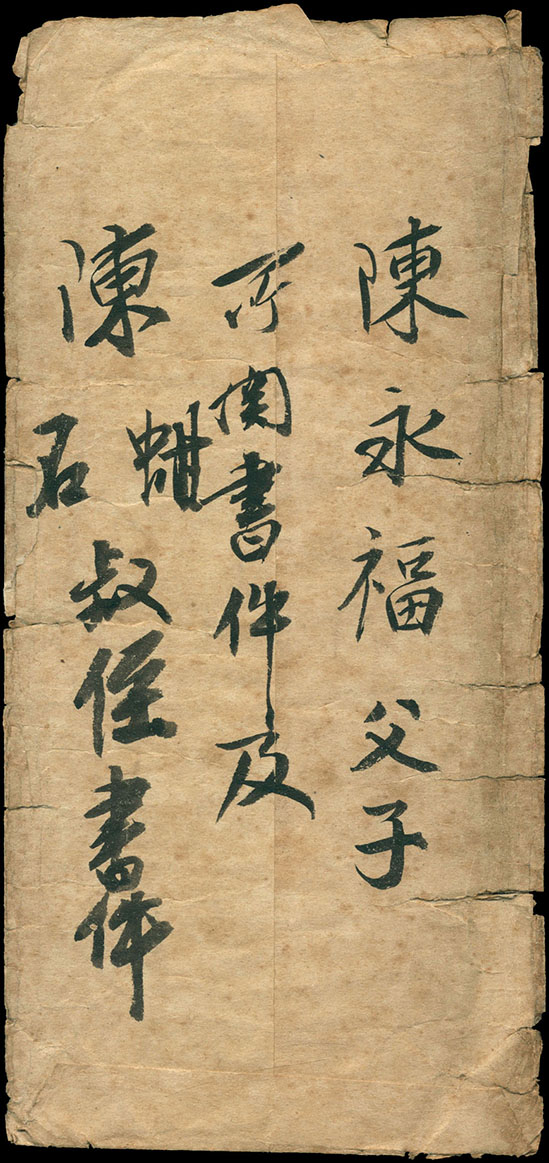 陳永福父子
所関書件及
陳蚶石叔侄書件